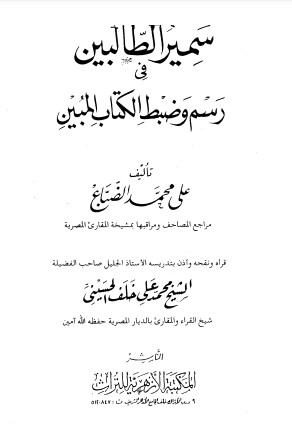 سمير الطالبين
في
رسم وضبط الكتاب المبين
تأليف
علي محمد الضباع
مراجع المصاحف ومراقبها بمشيخة المقارئ المصرية
قرأه ونقحه وأذن بتدريسه الأستاذ الجليل صاحب الفضيلة
الشيخ محمد علي خلف الحسيني
شيخ القراء والمقارئ بالديار المصرية حفظه الله آمين
الناشر
المكتبة الأزهرية للتراث